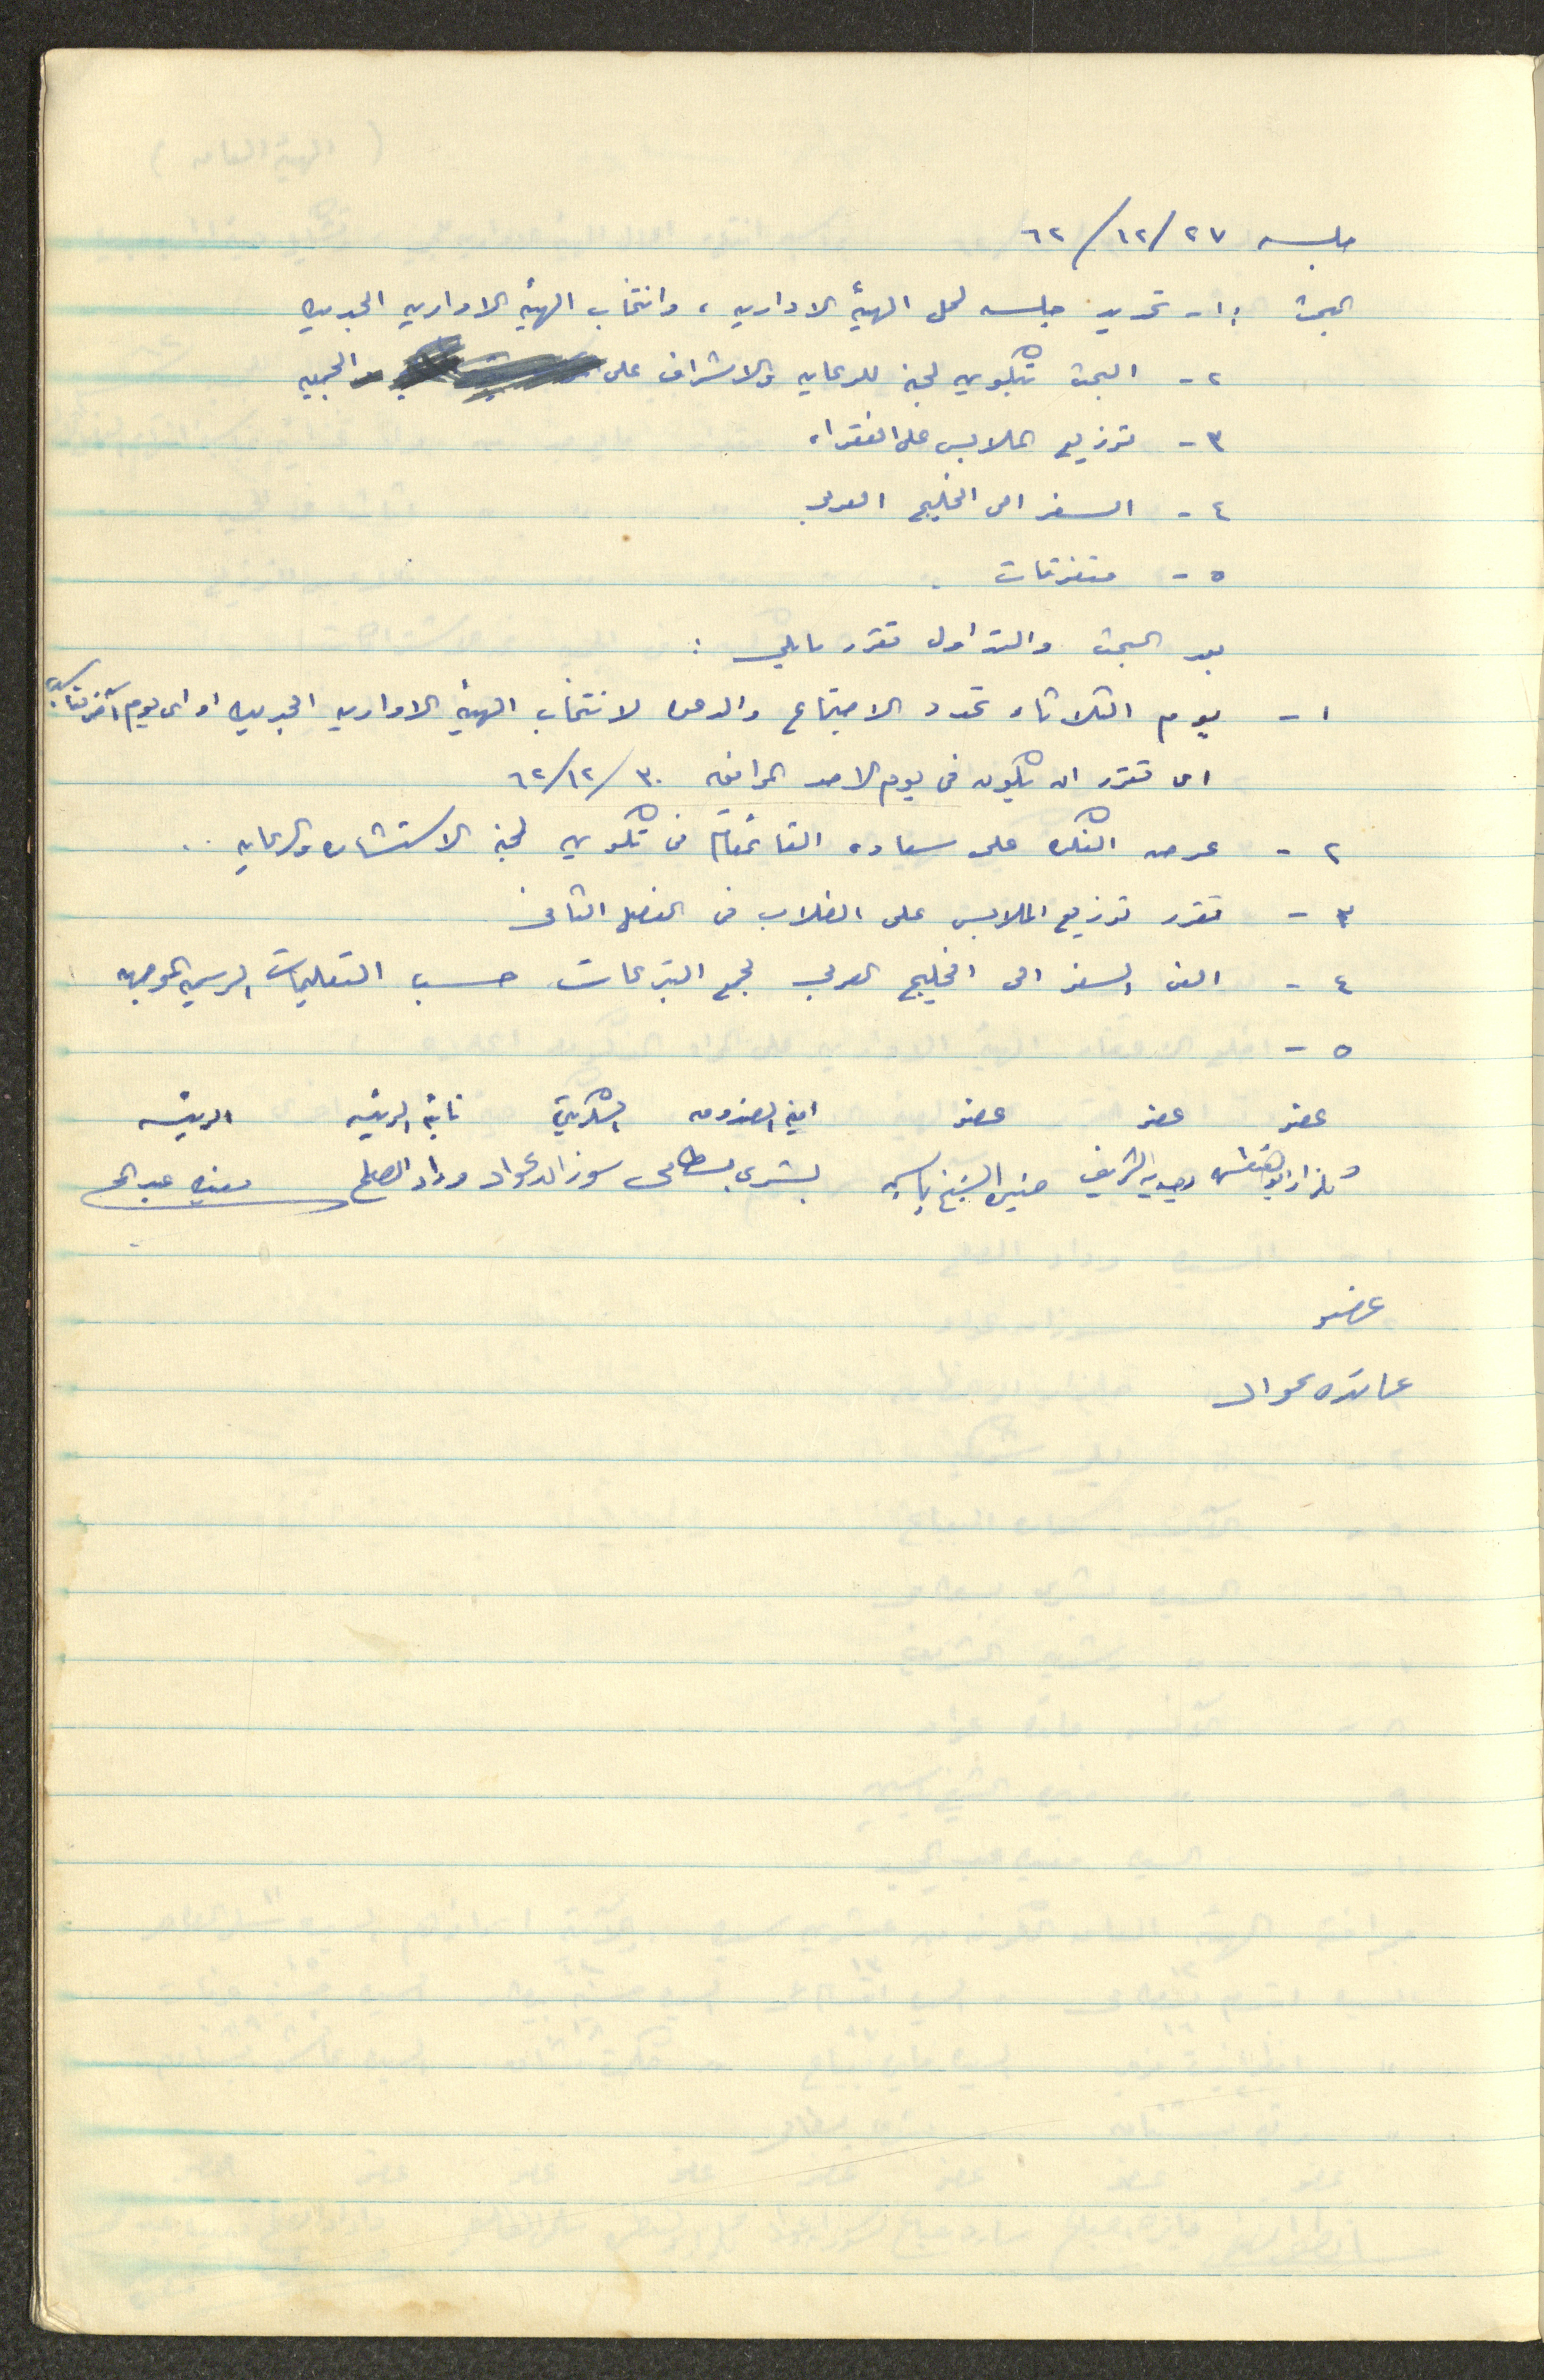 جلسه ٢٧/١٢/٦٢
البحث : ١- تحديد جلسه لحل الهيئة الاداريه ، وانتخاب الهيئه الاداريه الجديده
٢- البحث بتكوين لجنه للرعايه والاشراف على الجمعيه
٣- توزيع الملابس على الفقراء
٤- السفر الى الخليج العربي
٥- متفرقات
بعد البحث والتداول تقرر مايلي :
١- يوم الثلاثاء تحدد الاجتماع والدعوه لانتخاب الهيئة الاداريه الجديده او اى يوم آخر
اى تقرر ان يكون فى يوم الاحد الموافق ٣٠/١٢/٦٢
٢- عرض الفكره على سعادة القائمقام فى تكوين لجنة الاستشاره والرعايه ..
٣- تقرر توزيع الملابس على الطلاب فى الفصل الثانى
٤- الغى السفر الى الخليج العربي لجمع التبرعات حسب التعليمات الرسميه الموجهه
٥-
عضو عضو عضو امينة الصندوق السكرتيرة نائبة الرئيسه الرئيسه
وجديه الشريف منيره الشيخ ياسين بشرى بسطامى سوزان عواد وداد الصلح مفيده عبد
عضو
عائده عواد